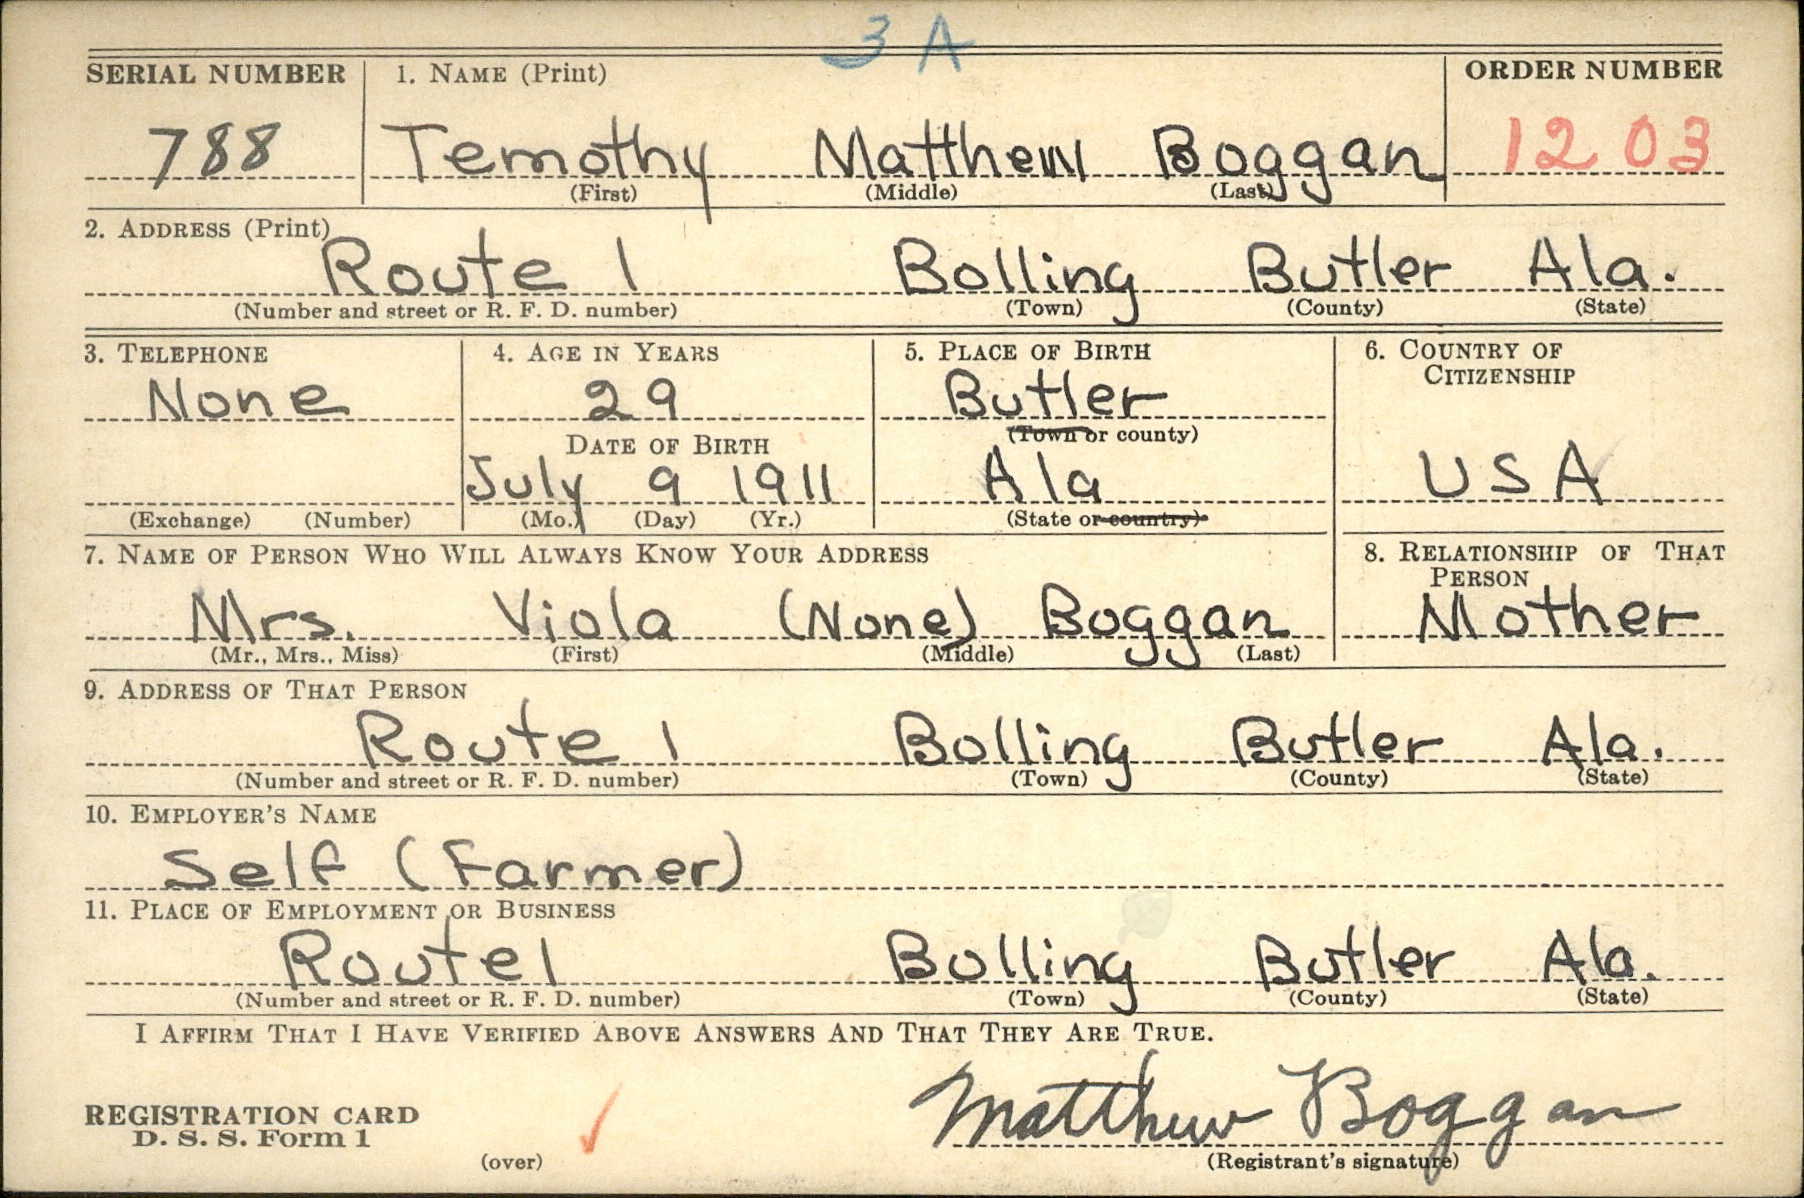 3 A
SERIAL NUMBER 1. NAME (Print) ORDER NUMBER
788 Temothy Matthew Boggan 1203
(First) (Middle) (Last)
2. ADDRESS (Print)
Route 1 Bolling Butler Ala.
(Number and street or R. F. D. number) (Town) (County) (State)
3. TELEPHONE 4. AGE IN YEARS 5. PLACE OF BIRTH 6. COUNTRY OF
CITIZENSHIP
None 29 Butler
(Town or county)
DATE OF BIRTH
July 9 1911 Ala USA
(Exchange) (Number) (Mo.) (Day) (Yr.) (State or country)
7. NAME OF PERSON WHO WILL ALWAYS KNOW YOUR ADDRESS 8. RELATIONSHIP OF THAT
PERSON
Mrs. Viola (None) Boggan Mother
(Mr., Mrs., Miss) (First) (Middle) (Last)
9. ADDRESS OF THAT PERSON
Route 1 Bolling Butler Ala.
(Number and street or R. F. D. number) (Town) (County) (State)
10. EMPLOYER'S NAME
Self (Farmer)
11. PLACE OF EMPLOYMENT OR BUSINESS
Route 1 Bolling Butler Ala.
(Number and street or R. F. D. number) (Town) (County) (State)
I AFFIRM THAT I HAVE VERIFIED ABOVE ANSWERS AND THAT THEY ARE TRUE.
Matthew Boggan
REGISTRATION CARD
D. S. S. Form 1
(over) (Registrant's signature)